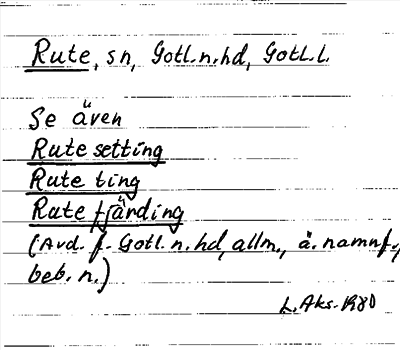 Rute, sn, Gotl.n.hd, Gotl.l.
Se även
Rute setting
Rute ting
Rute fjärding
(Avd. f. Gotl.n.hd, allm., ä. namnf.,
beb. n.)
L. Aks. 1980